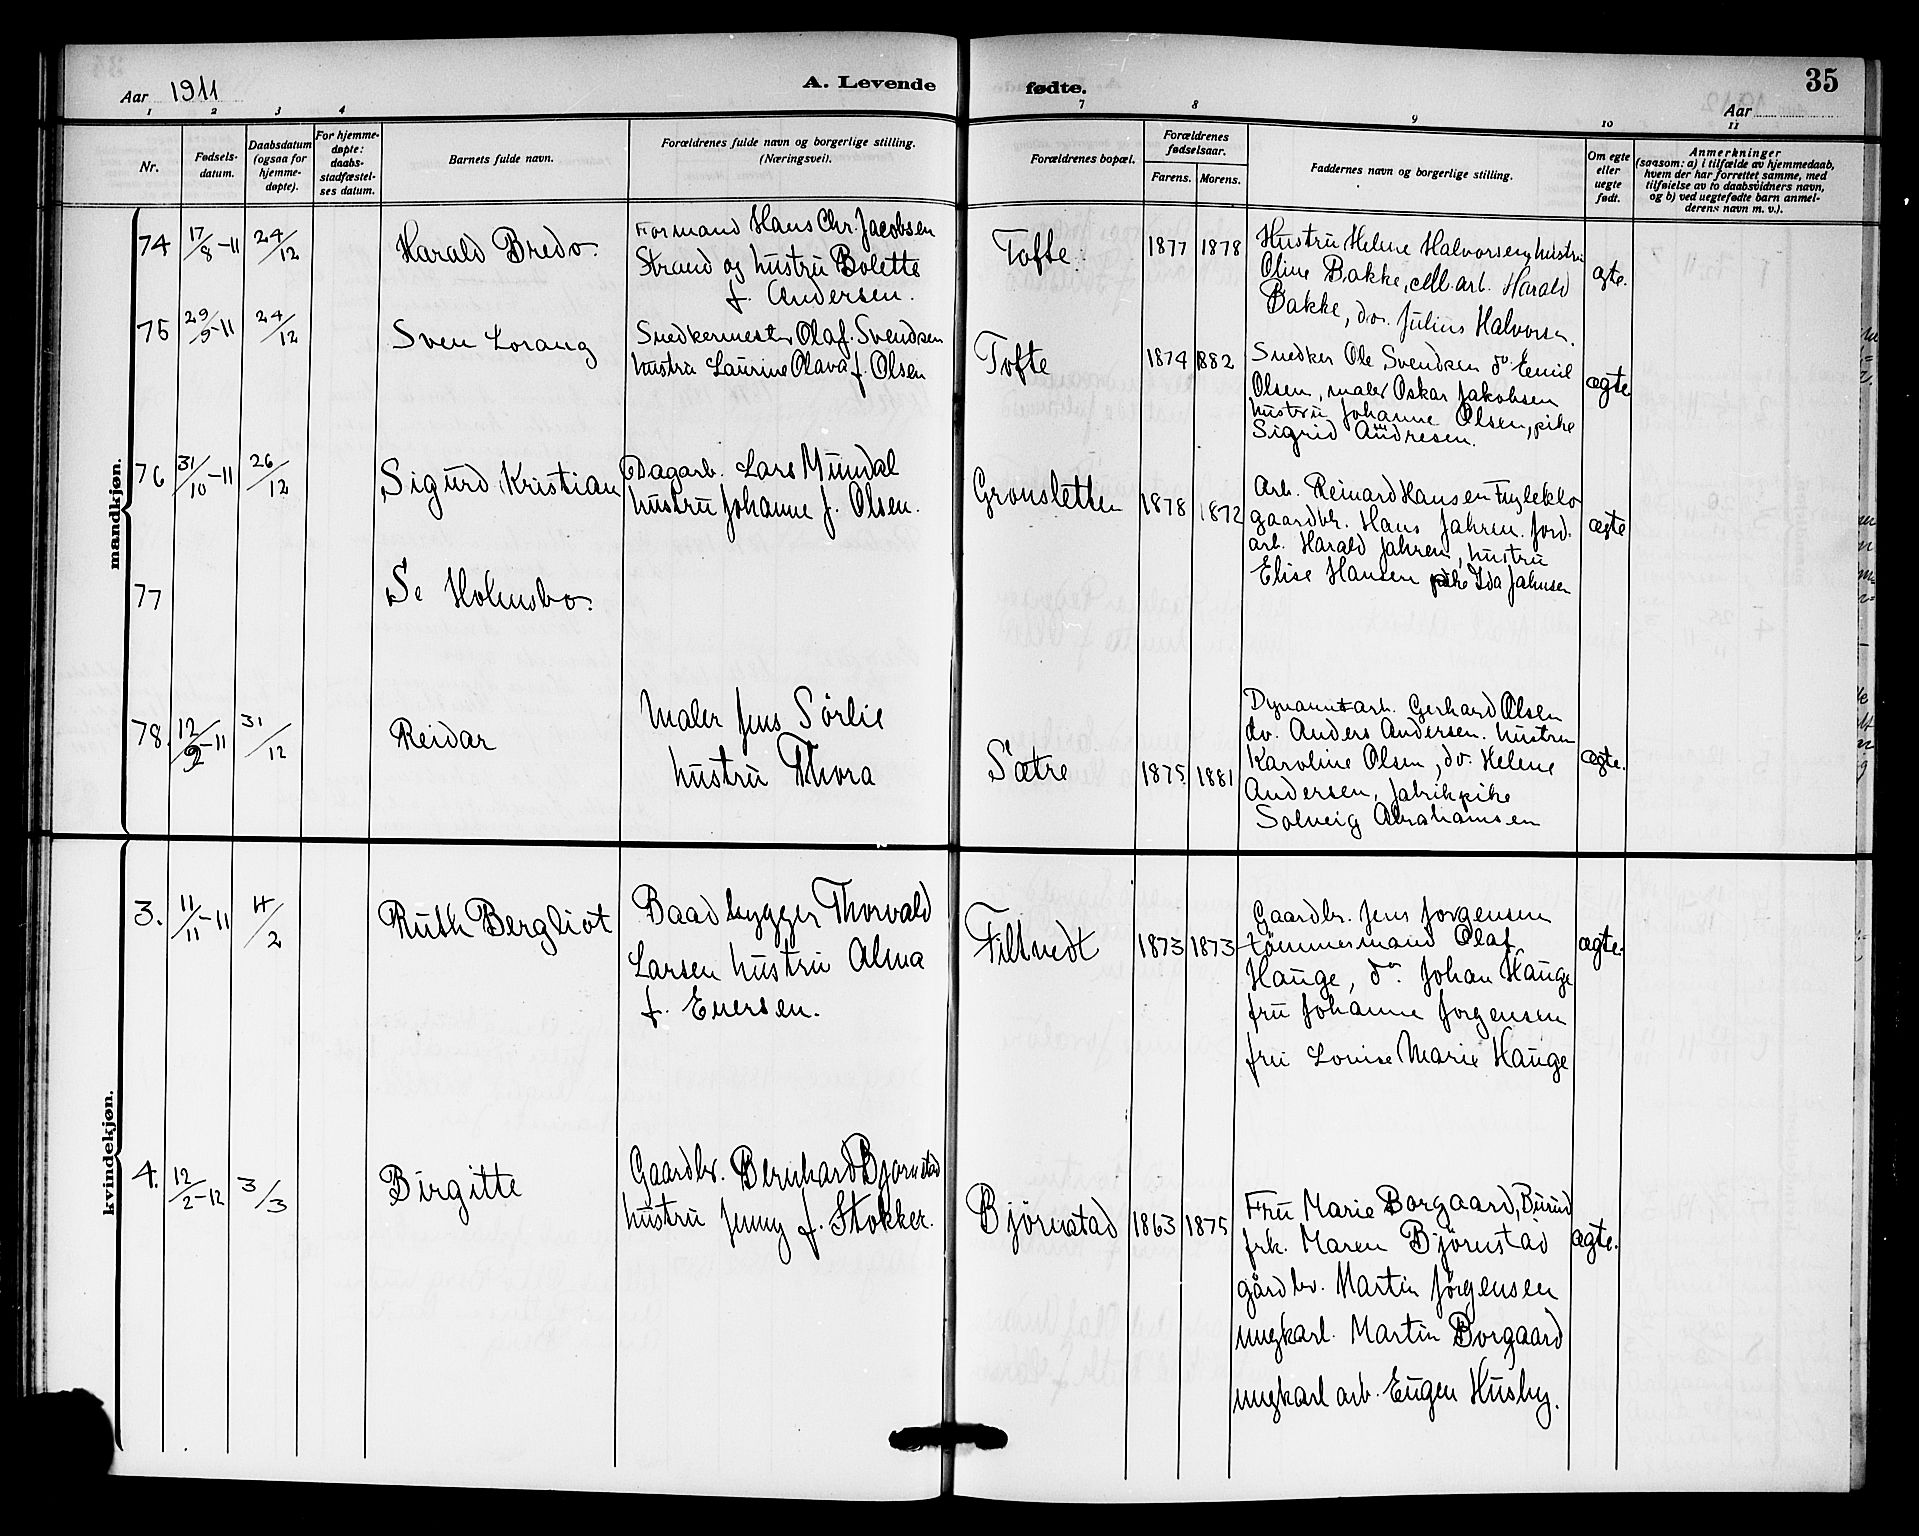 Aar 1911
A. Levende
fødte.
35
Aar
1 2 3 4 7 8 9 10 11
Nr.
Fødsels-
datum.
Daabsdatum
(ogsaa for
hjemme-
døpte).
For hjemme-
døpte:
daabs-
stadfæstel-
ses datum.
Barnets fulde navn.
Forældrenes fulde navn og borgerlige stilling.
(Næringsvei).
Forældrenes bopæl.
Forældrenes
fødselsaar.
Farens. Morens.
Faddernes navn og borgerlige stilling.
Om egte
eller
uegte
født.
Anmerkninger
(saasom: a) i tilfælde av hjemmedaab,
hvem der har forrettet samme, med
tilføielse av to daabsvidners navn,
og b) ved uegtefødte barn anmel-
derens navn m. v.).
mandkjøn.
74 17/8-11 24/12
Harald Bredo
Formand Hans Chr. Jacobsen
Strand og hustru Bolette
f. Andersen.
Tofte 1877 1878
Hustru Helene Halvorsen, hustru
Oline Bakke, cell.arb. Harald
Bakke, do. Julius Halvorsen.
ægte.
75 29/9-11 24/12
Sven Lorang
Snedkermester Olaf Svendsen
hustru Laurine Olava f. Olsen
Tofte 1874 1882
Snedker Ole Svendsen do Emil
Olsen, maler Oskar Jakobsen
hustru Johanne Olsen, pike
Sigrid Andresen.
ægte
76 31/10-11 26/12
Sigurd Kristian
Dagarb. Lars Mundal
hustru Johanne f. Olsen.
Gronsletten 1878 1872
Arb. Reinard Hansen Fugleklo
gaardbr. Hans Jahren. Jord.
arb. Harald Jahren, hustru
Elise Hansen pike Ida Jahnsen
ægte
77
Se Holmsbo
78. 12/9-11 31/12
Reidar
Maler Jens Sørlie
hustru Thora
Sætre 1875 1881
Dynamitarb. Gerhard Olsen
do. Anders Andersen. hustru
Karoline Olsen, do. Helene
Andersen, fabrikpike
Solveig Abrahamsen
ægte.
kvindekjøn.
3. 11/11-11 4/2
Ruth Bergliot
Baadbygger Thorvald
Larsen hustru Alma
f. Evensen.
Filtvedt 1873 1873
Gaardbr. Jens Jorgensen
tømmermand Olaf
Hauge, do Johan Hauge
fru Johanne Jorgensen
fru Louise Marie Hauge
ægte.
4. 12/2-12 3/3
Birgitte
Gaardbr. Bernhard Bjornstad
hustru Jenny f. Stokker.
Bjørnstad 1863 1875
Fru Marie Borgaard, Burud
frk. Maren Bjørnstad
gårdbr. Martin Jørgensen
ungkarl. Martin Borgaard
ungkarl arb. Eugen Husby.
ægte.